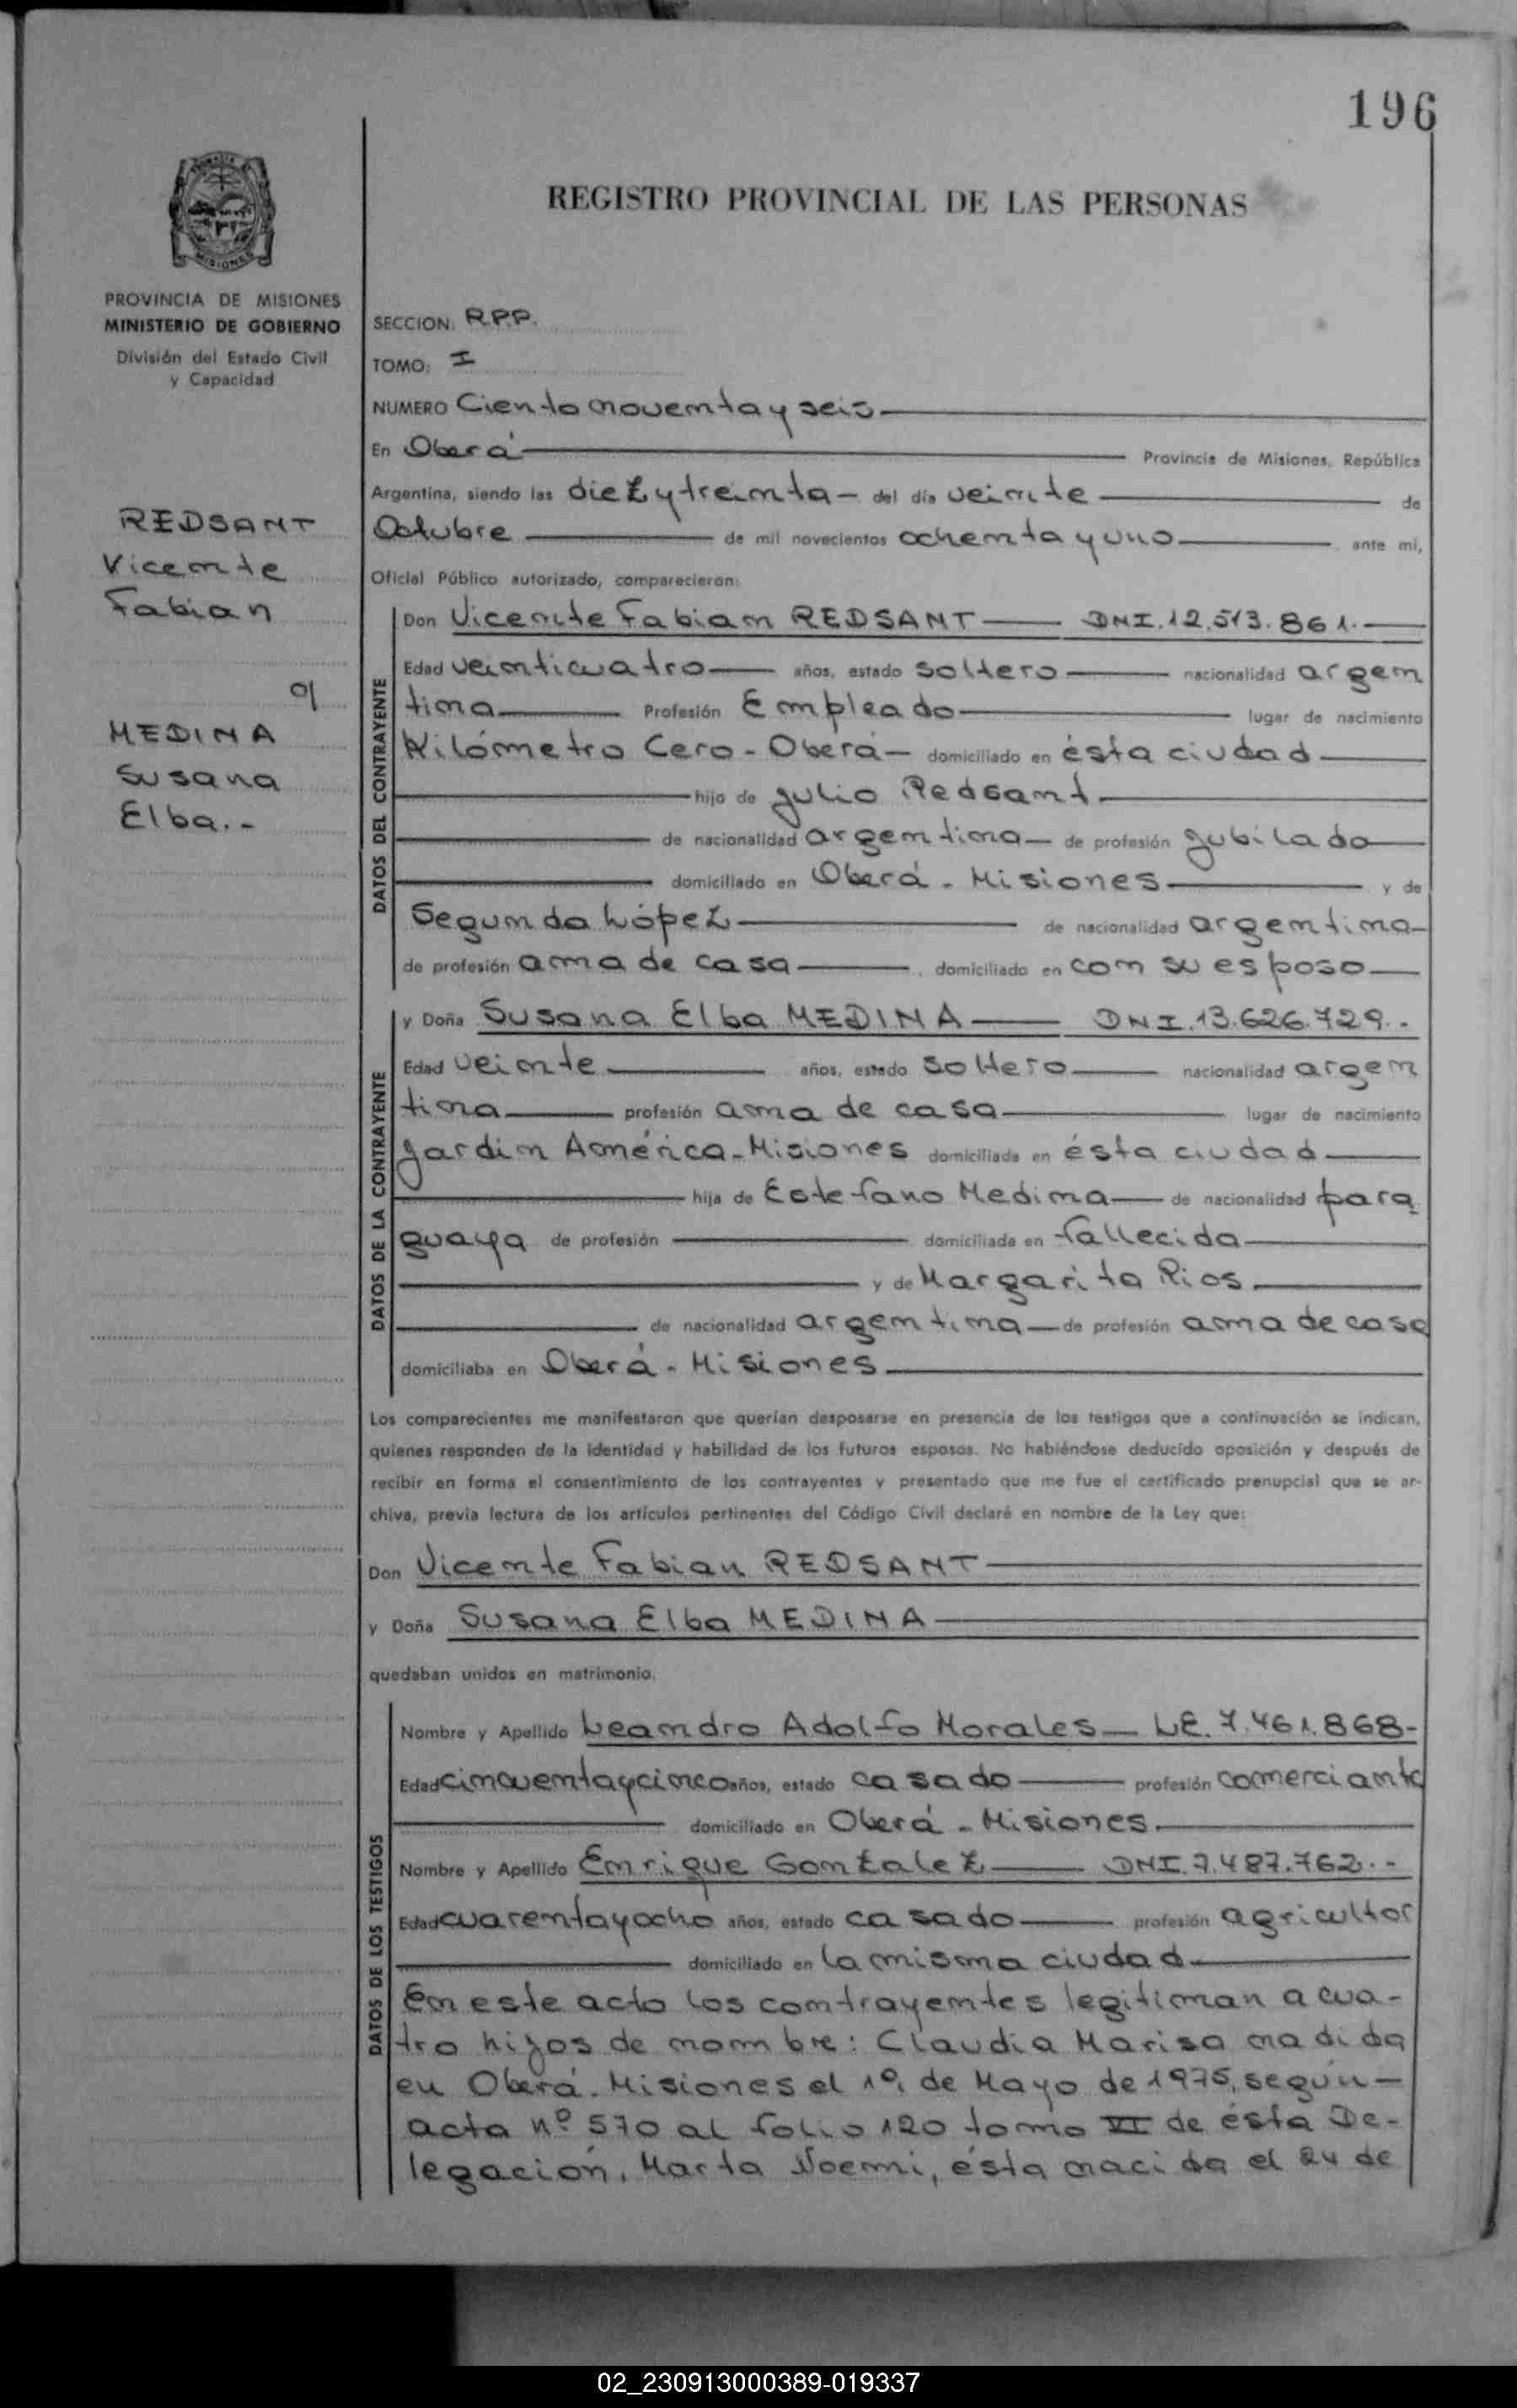 196
REGISTRO PROVINCIAL DE LAS PERSONAS
MISIONES
PROVINCIA DE MISIONES
MINISTERIO DE GOBIERNO
División del Estado Civil
y Capacidad
REDSANT
Vicente
Fabian
c/
MEDINA
Susana
Elba.-
SECCION: R.P.P.
TOMO: I
NUMERO Ciento noventa y seis
En Oberá Provincia de Misiones, República
Argentina, siendo las diez y treinta - del día veinte de
Octubre de mil novecientos ochenta y uno ante mi,
Oficial Público autorizado, comparecieron:
DATOS DEL CONTRAYENTE
Don Vicente Fabian REDSANT DNI. 12.513.861.
Edad veinticuatro años, estado soltero nacionalidad argen
tina Profesión Empleado lugar de nacimiento
Kilómetro Cero - Oberá - domiciliado en ésta ciudad
hijo de Julio Redsant
de nacionalidad argentina - de profesión jubilado
domiciliado en Oberá - Misiones y de
Segunda López de nacionalidad argentina
de profesión ama de casa, domiciliado en con su esposo
DATOS DE LA CONTRAYENTE
y Doña Susana Elba MEDINA DNI. 13.626.729.-
Edad veinte años, estado soltero nacionalidad argen
tina profesión ama de casa lugar de nacimiento
Jardin América - Misiones domiciliada en ésta ciudad
hija de Estefano Medina de nacionalidad para
guaya de profesión domiciliada en fallecida
y de Margarita Rios
de nacionalidad argentina de profesión ama de casa
domiciliaba en Oberá - Misiones
Los comparecientes me manifestaron que querían desposarse en presencia de los testigos que a continuación se indican,
quienes responden de la identidad y habilidad de los futuros esposos. No habiéndose deducido oposición y después de
recibir en forma el consentimiento de los contrayentes y presentado que me fue el certificado prenupcial que se ar-
chiva, previa lectura de los artículos pertinentes del Código Civil declaré en nombre de la Ley que:
Don Vicente Fabian REDSANT
y Doña Susana Elba MEDINA
quedaban unidos en matrimonio.
DATOS DE LOS TESTIGOS
Nombre y Apellido Leandro Adolfo Morales LE. 7.461.868-
Edad cincuenta y cinco años, estado casado profesión comerciante
domiciliado en Oberá - Misiones.
Nombre y Apellido Enrique Gonzalez DNI. 7.487.762.-
Edad cuarenta y ocho años, estado casado profesión agricultor
domiciliado en la misma ciudad.
En este acto los contrayentes legitiman a cua-
tro hijos de nombre: Claudia Marisa nadida
en Oberá - Misiones el 1º de Mayo de 1975, según -
acta nº 570 al folio 120 tomo VI de ésta De-
legación, Marta Noemi, ésta nacida el 24 de
02_230913000389-019337